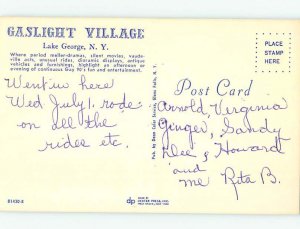 GASLIGHT VILLAGE
Lake George, N. Y.
Where period meller-dramas, silent movies, vaude-
ville acts, unusual rides, dioramic displays, antique
vehicles and furnishings, highlight an afternoon or
evening of continuous Gay 90's fun and entertainment.
PLACE
STAMP
HERE
Post Card
Went in here
Wed July 1. rode
on all the
rides etc.
Arnold, Virginia
Ginger, Sandy
Dee & Howard
and
me Rita B.
Pub. by Dean Color Service, Glens Falls, N. Y.
81430-B
dp
DEXTER PRESS, INC.
WEST NYACK, NEW YORK